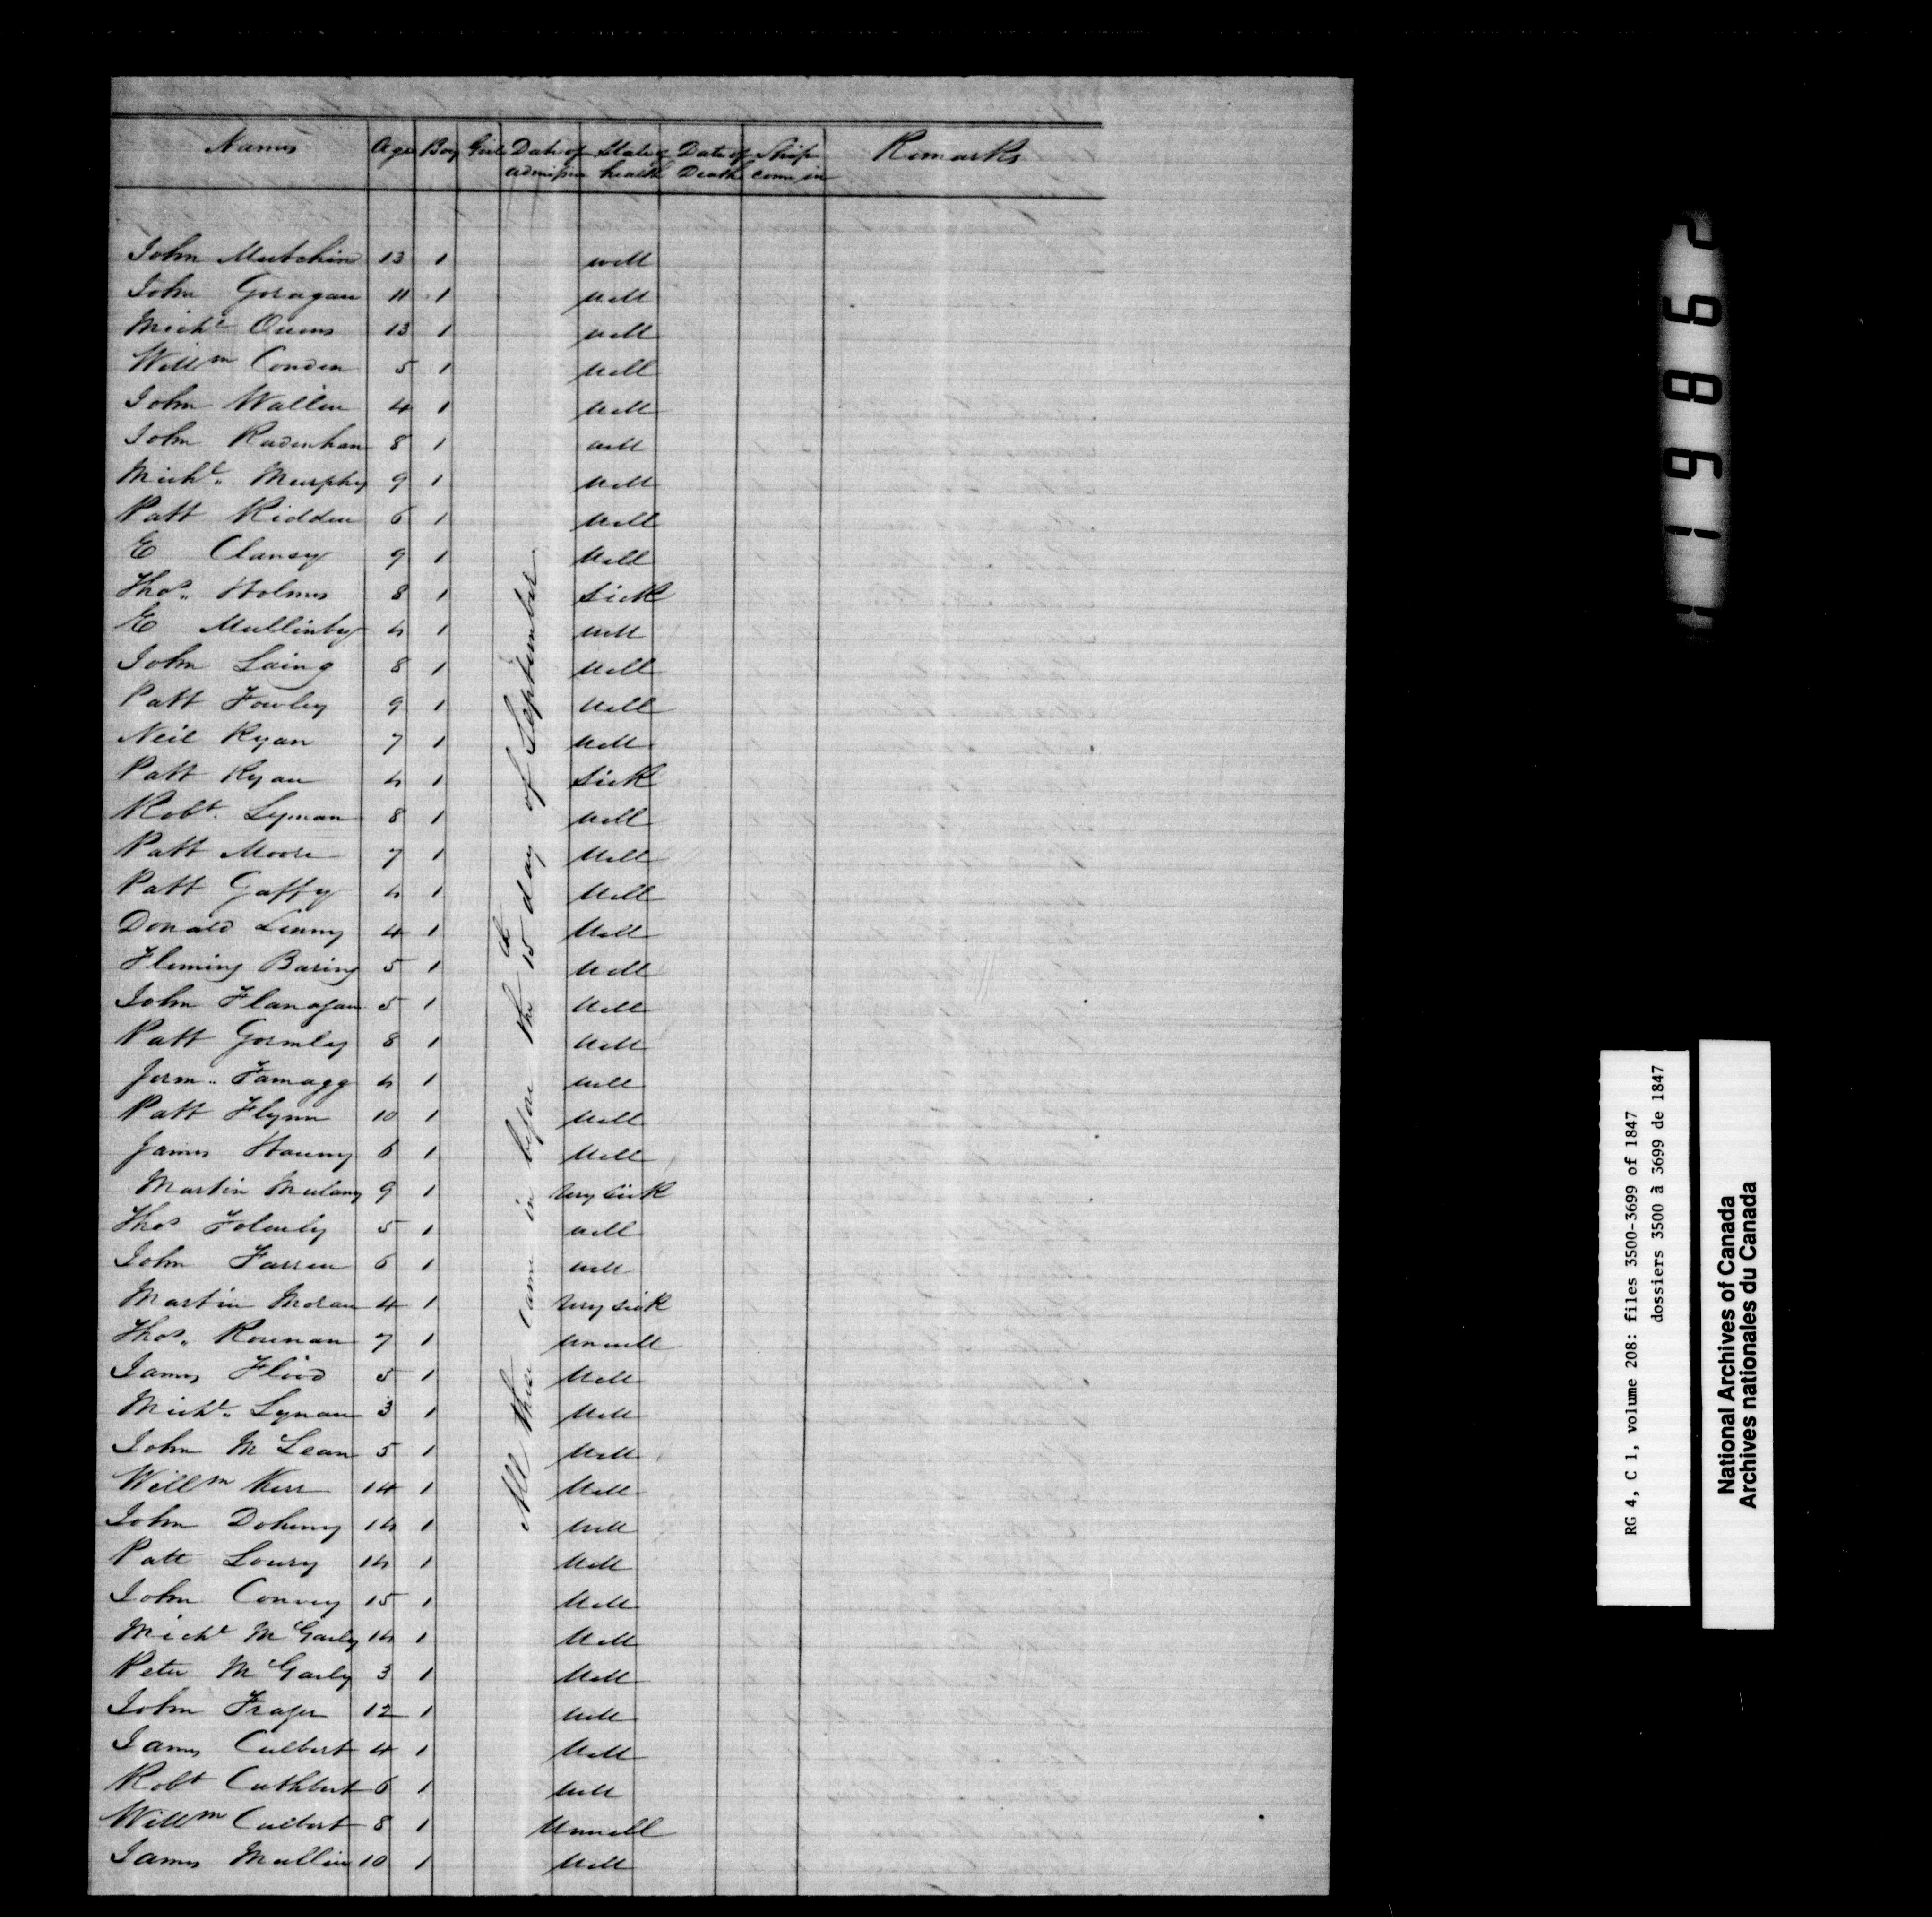 Names Age Boy Girl Date of admission State of health Date of Death Ship came in Remarks
John Mutchin 13 1 well
John Goragan 11 1 well
Michl Owens 13 1 well
Willm Conden 5 1 well
John Wallin 4 1 well
John Radenhan 8 1 well
Michl. Murphy 9 1 well
Patt Ridden 6 1 well
E Clansy 9 1 well
Thos. Holmes 8 1 Sick
E Mullinby 4 1 well
John Laing 8 1 well
Patt Fowley 9 1 well
Neil Ryan 7 1 well
Patt Ryan 4 1 Sick
Robt. Lyman 8 1 well
Patt Moore 7 1 well
Patt Gaffy 4 1 well
Donald Linny 4 1 well
Fleming Baring 5 1 well
John Flanagan 5 1 well
Patt Gormley 8 1 well
Jerm. Famagg 4 1 well
Patt Flynn 10 1 well
James Haumy 6 1 well
Martin Mulany 9 1 very sick
Thos 5 1 well
John Farren 6 1 well
Martin Moran 4 1 very sick
Thos. Rounan 7 1 unwell
James Flood 5 1 well
Michl. Lynan 3 1 well
John McLean 5 1 well
Willm Kerr 14 1 well
John Doheny 14 1 well
Patt Loury 14 1 well
John Convey 15 1 well
Michl McGarly 14 1 well
Peter McGarly 3 1 well
John Frafer 12 1 well
James Culbert 4 1 well
Robt Cuthbert 6 1 well
Willm Culbert 8 1 Unwell
James Mullin 10 1 well
All these came in before the 15th day of September
119862
RG 4, C 1, volume 208: files 3500-3699 of 1847
dossiers 3500 à 3699 de 1847
National Archives of Canada
Archives nationales du Canada